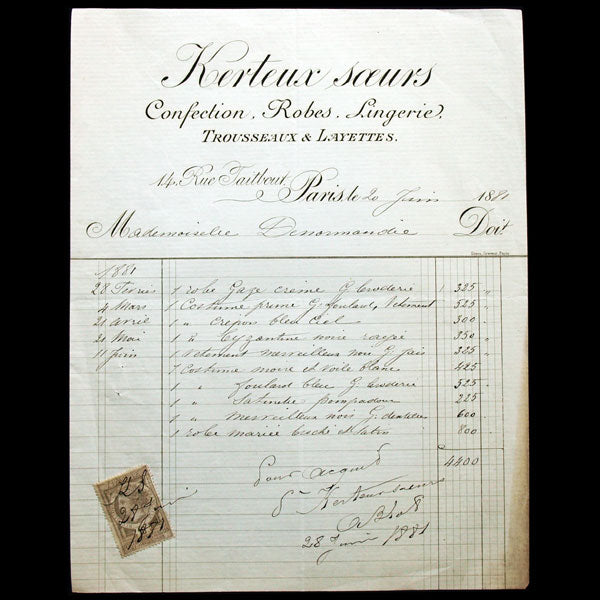 Kerteux sœurs
Confection, Robes, Lingerie,
TROUSSEAUX & LAYETTES.
14, Rue Taitbout, Paris, le 20 Juin 1881
Mademoiselle Denormandie Doit
1881
28 Fevrier 1 robe Gaze crème G broderie 1 325 "
4 Mars 1 Costume prune G foulard, Vetement 525 "
21 avril 1 " Crepons bleu Ciel 300 "
21 Mai 1 " Byzantine noire rayée 350 "
11 Juin 1 Vetement merveilleux noir G jais 325 "
1 Costume moire et voile blanc 425
1 " foulard bleu G broderie 525 "
1 " Satinette pompadour 225
1 " Merveilleux noir G dentelles 600
1 robe mariée et Satin 800
4400
Pour acquit
Kerteux soeurs
28 Juin 1881
1881